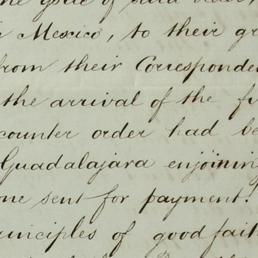 Mexico, to their gr
from their Corresponde
the arrival of the fi
counter order had be
Guadalajara enjoinin
one sent for payment!
rinciples of good fait